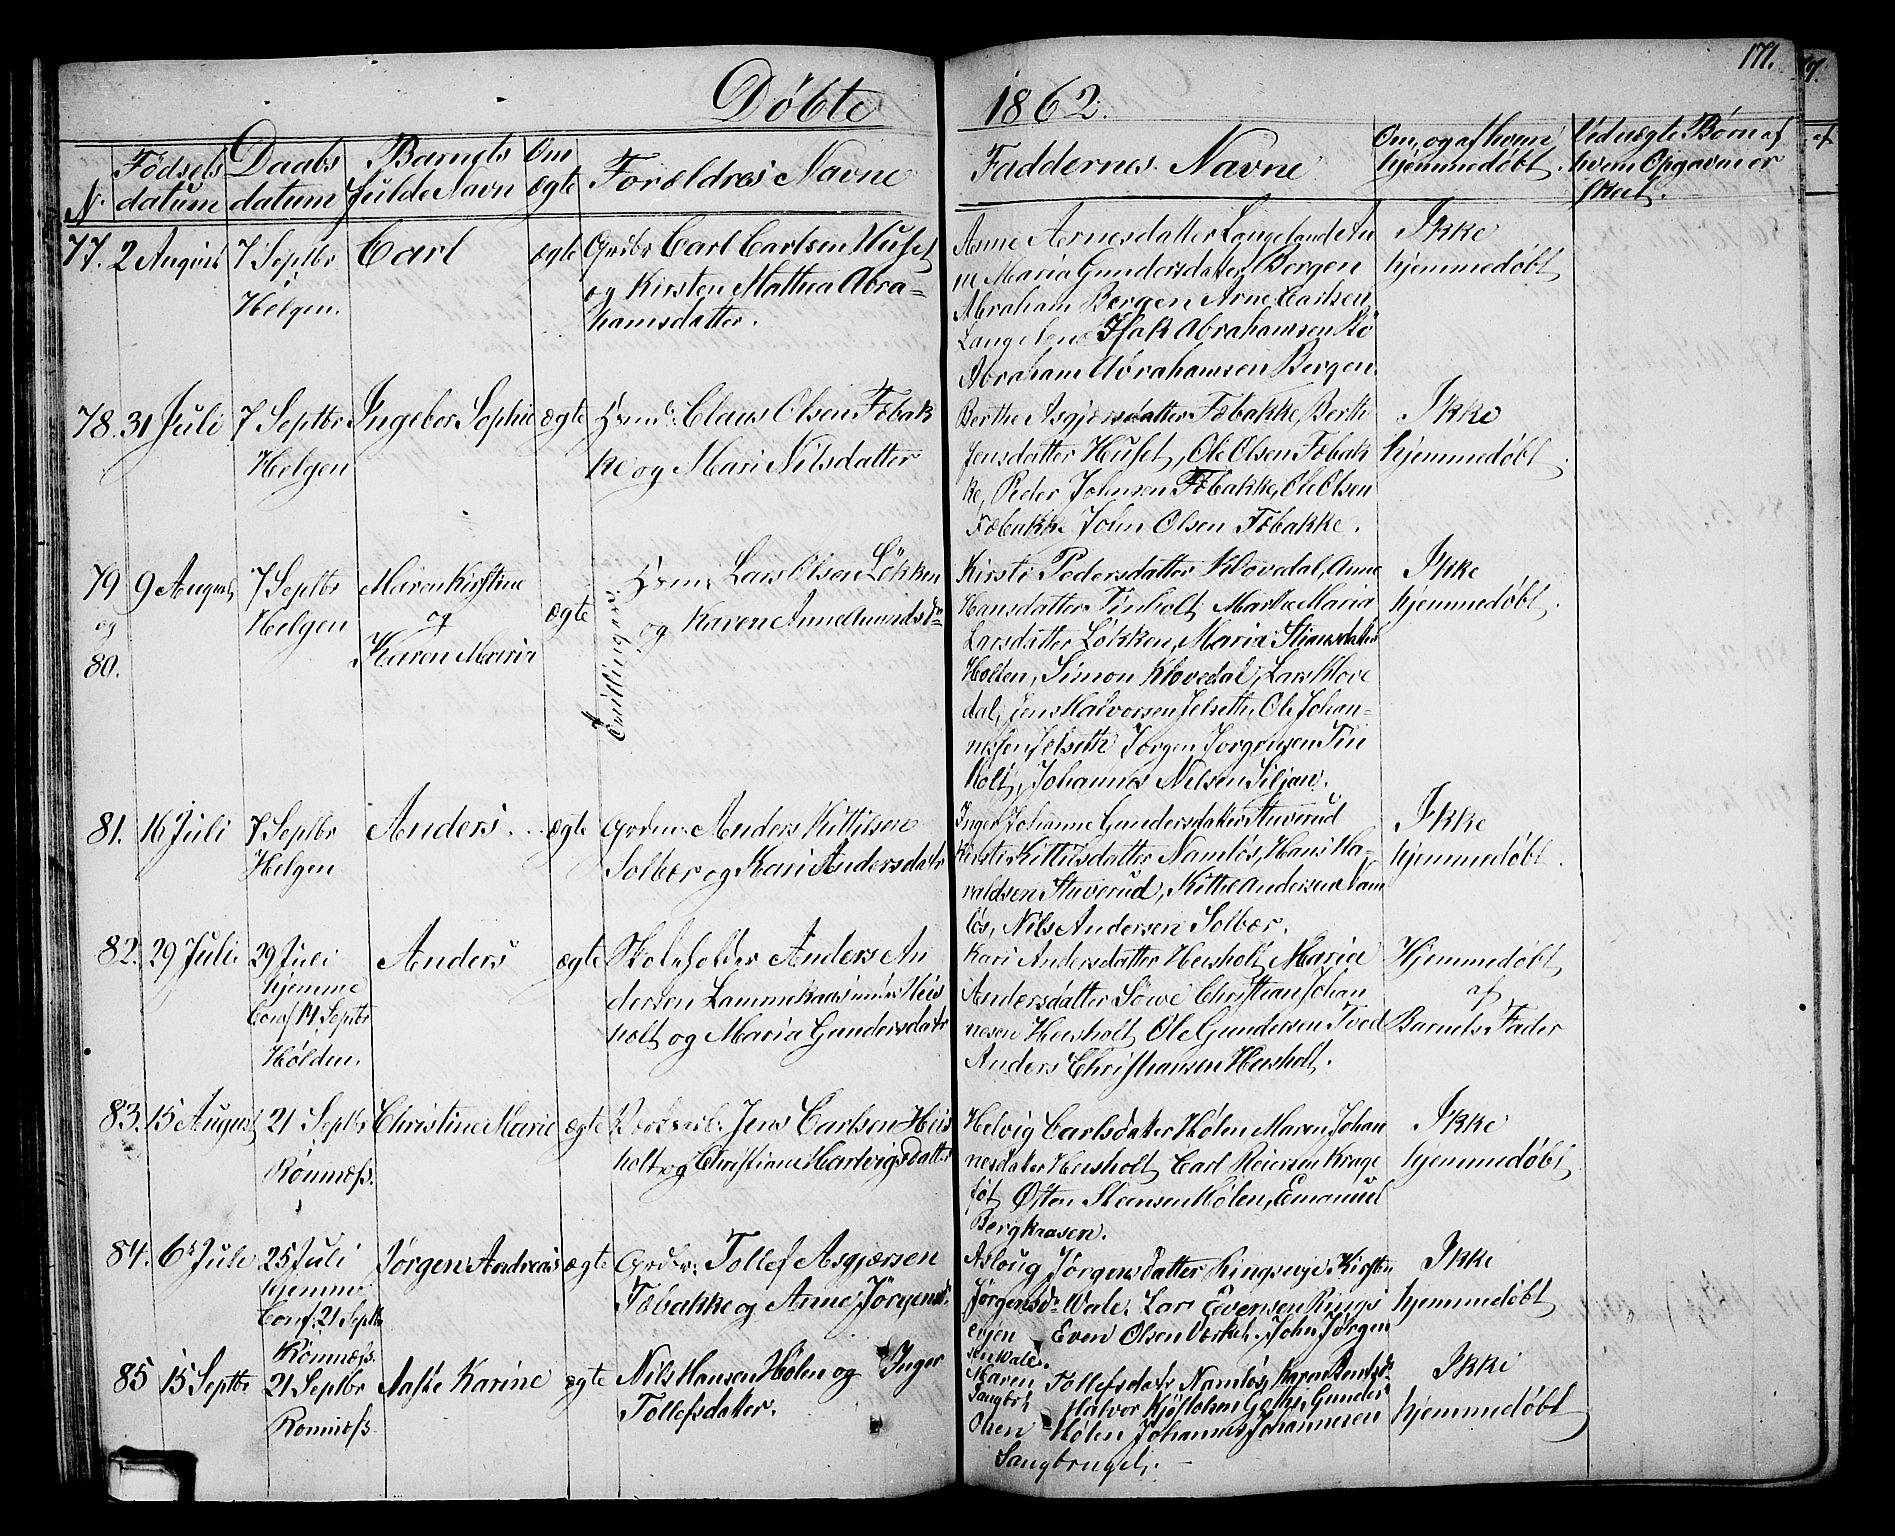 Døbte
1862.
171.
N.
Fødsels
datum
Daabs
datum
Barnets
fulde Navn
Om
ægte
Forældres Navne
Faddernes Navne
Om, og af hvem
hjemmedøbt.
Ved uægte Børn af
hvem Opgaven er
skeet.
77. 2 August
7 Septbr
Helgen.
Carl
ægte
Grdbr Carl Carlsen Huset
og Kirsten Mathea Abra=
hamsdatter.
Anne Arnesdatter Langeland An
ne Maria Gundersdatter Bergen
Abraham Bergen Arne Carlsen
Langelan Isak Abrahamsen
Abraham Abrahamsen Bergen.
Ikke
hjemmedøbt
78. 31 Juli
7 Septbr
Helgen
Ingebor Sophie
ægte
Claus Olsen Fæbak
ke og Mari Nilsdatter
Berthe Asgjersdatter Fæbakke, Berth
Jensdatter Huset, Ole Olsen Fæbak
ke, Peder Johnsen Fæbakke, Ole Olsen
Fæbakke John Olsen Fæbakke.
Ikke
hjemmedøbt.
79
og
80.
9 August
7 Septbr
Helgen
Maren Kirstine
og
Karen Maria
ægte
Tvillinger.
Lars Olsen Løkken
og Karen Amundsd=
Kirsti Pedersdatter Klovedal, Anne
Hansdatter Tinholt, Marthe Maria
Larsdatter Løkken, Maria Simensdatter
Holten, Simon Klovedal, Lars Klove
dal, Jens Halvorsen Jelseth, Ole Johan=
nesen Jelseth Jørgen Jorgensen Tin
holt, Johannes Nilsen Siljan.
Ikke
hjemmedøbt.
81. 16 Juli
7 Septbr
Helgen
Anders.
ægte
Anders Kittilsen
Solbær og Kari Andersdatr
Inger Johanne Gundersdatter Stuverud
Kirsti Kittilsdatter Namløs, Hans Ha=
raldsen Stuverud, Kittil Andersen Nam
løs, Nils Andersen Solbær.
Ikke
hjemmedøbt.
82. 29 Juli
29 Juli
hjemme
Conf 14 Septbr
Hølden.
Anders
ægte
Skoleholder Anders An
dersen Lammekaas under Heis
holt og Maria Gundersdatr
Kari Andersdatter Heisholt, Maria
Andersdatter Sòwe Christian Johan
nesen Heisholt Ole Gundersen Tved
Anders Christiansen Heisholt.
Hjemmedøbt
af
Barnets Fader
83. 15 August
21 Septbr
Rønnæss.
Christine Marie
ægte
Jens Carlsen Heis
holt og Christiane Hartvigsdatter
Helvig Carlsdatter Hølen Maren Johan
nesdater Heisholt, Carl Reiersen Krage
føt, Østen Steensen Hølen, Emanuel
Bergkaasen.
Ikke
hjemmedøbt
84. 6 Juli
25 Juli
hjemme
Conf. 21 Septbr
Rønnæss.
Jørgen Andreas
ægte
Grdbr: Tollef Asgjærsen
Fæbakke og Anne Jørgensd.
Asloug Jørgensdatter Ringsevje, Kirsten
Jørgensdr Wale. Lars Evensen Rings
evjen Even Olsen Værket, John Jørgen
sen Wale.
Ikke
hjemmedøbt
85 15 Septbr
21 Septbr
Rønnæss
Aasle Karine
ægte
Nils Hansen Hølen og Inger
Tollefsdatter.
Maren Tollefsdatr Namløs, Karen Bentsdr
Halvor Gunder
Olsen Hølen Johannes Johannesen
Saugbruget.
Ikke
hjemmedøbt